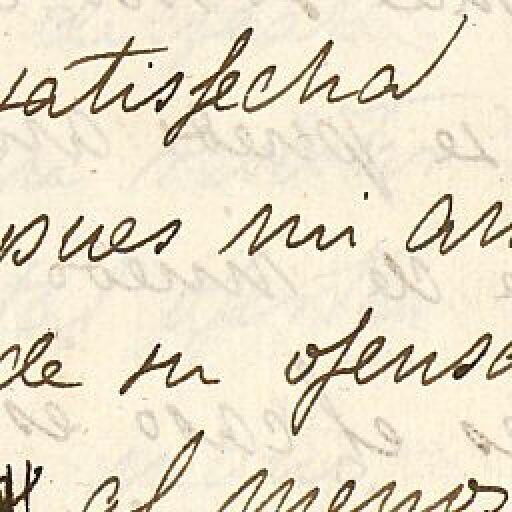 satisfecha
pues mi am
de su ofensa
al menos